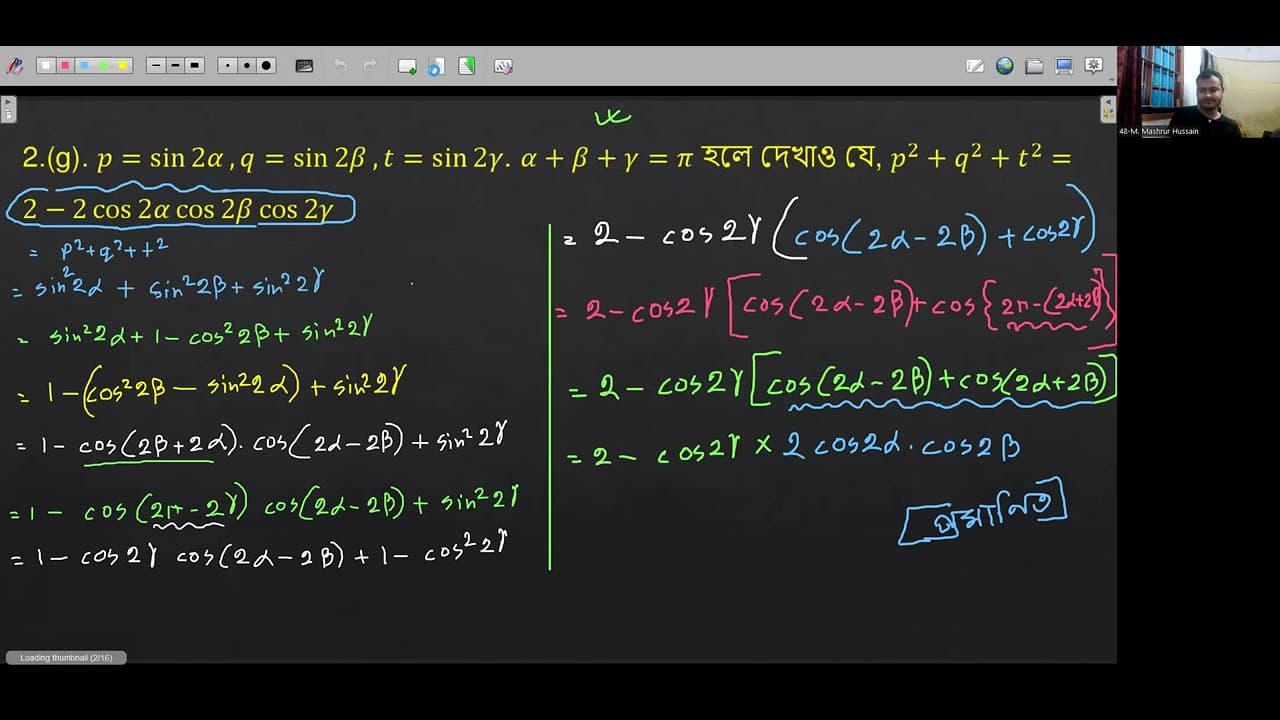 48-M. Mashrur Hussain
2.(g). p = sin 2α , q = sin 2β , t = sin 2γ. α + β + γ = π হলে দেখাও যে, p² + q² + t² =
2 − 2 cos 2α cos 2β cos 2γ
= p²+q²+t²
= sin²2α + sin²2β + sin²2γ
= sin²2α + 1 − cos²2β + sin²2γ
= 1 − (cos²2β − sin²2α) + sin²2γ
= 1 − cos(2β+2α). cos(2α−2β) + sin²2γ
= 1 − cos(2π−2γ) cos(2α−2β) + sin²2γ
= 1 − cos2γ cos(2α−2β) + 1 − cos²2γ
= 2 − cos2γ (cos(2α−2β) + cos2γ)
= 2 − cos2γ [cos(2α−2β) + cos{2π−(2α+2β)}]
= 2 − cos2γ [cos(2α−2β) + cos(2α+2β)]
= 2 − cos2γ × 2 cos2α . cos2β
প্রমাণিত
Loading thumbnail (2/16)